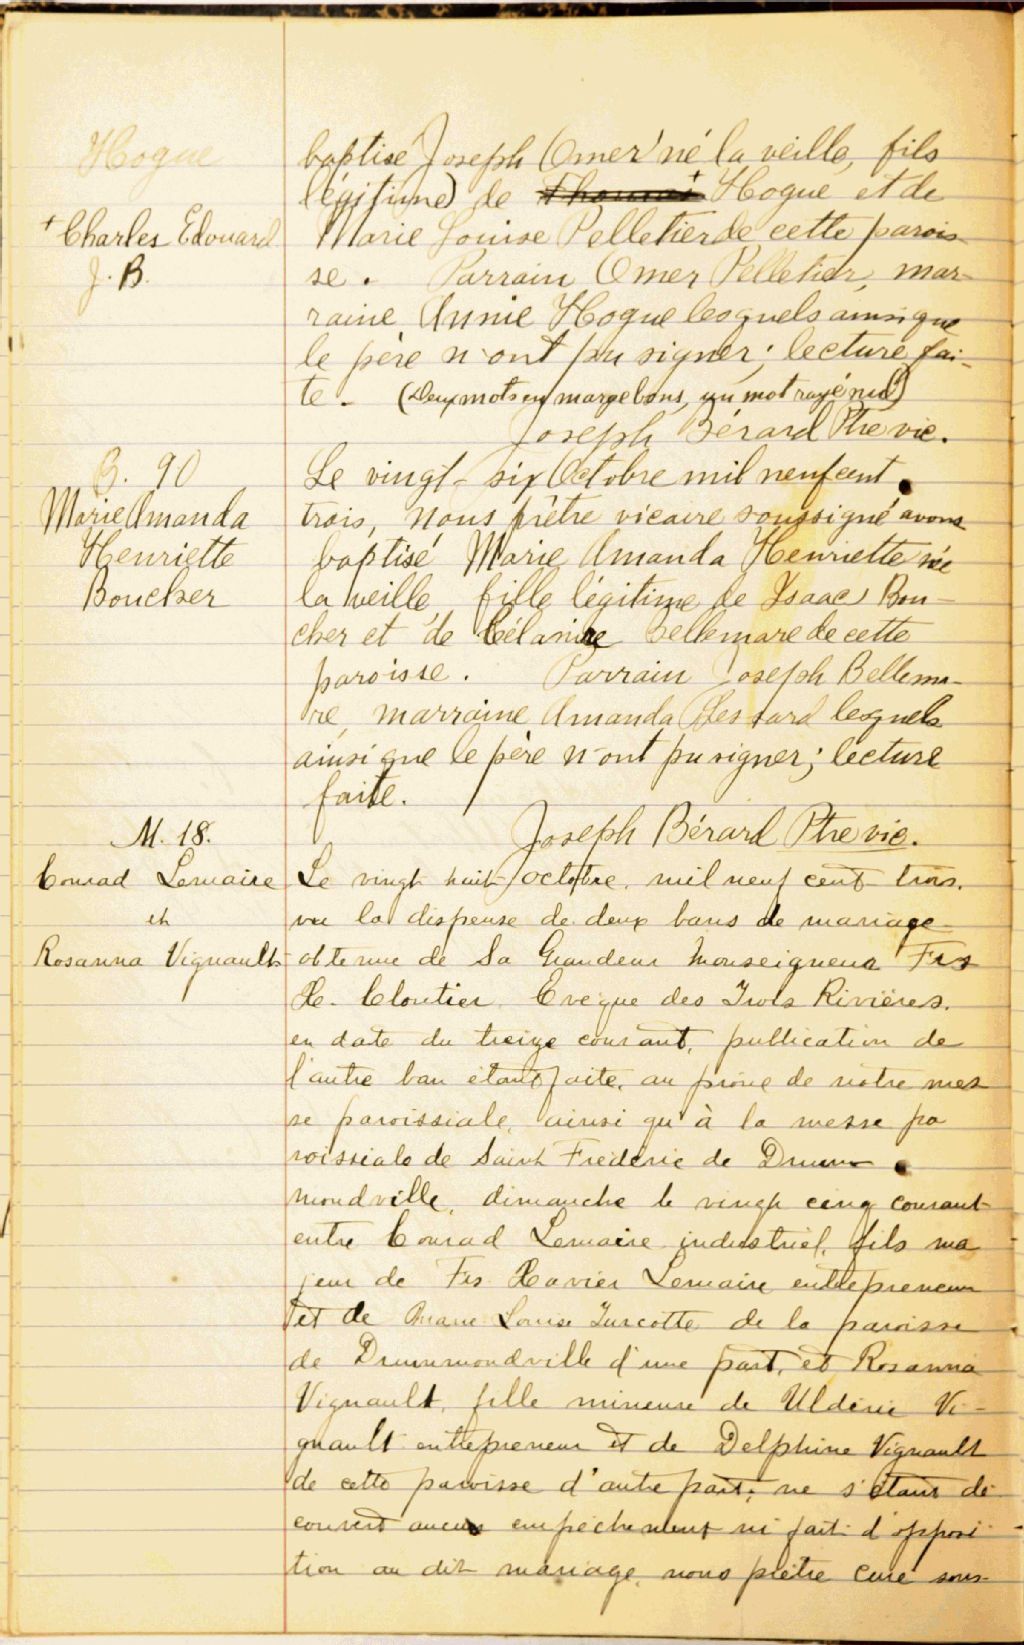 Hogue
+ Charles Edouard
J. B.
baptisé Joseph Omer né la veille, fils
légitime de Thomas + Hogue et de
Marie Louise Pelletier de cette parois-
se. Parrain Omer Pelletier, mar-
raine Annie Hogue lesquels ainsi que
le père n'ont pu signer; lecture fai-
te. (Deux mots en marge bons, un mot rayé nul)
Joseph Bérard Ptre vic.
B. 90
Marie Amanda
Henriette
Boucher
Le vingt-six Octobre mil neuf cent
trois, nous prêtre vicaire soussigné avons
baptisé Marie Amanda Henriette née
la veille, fille légitime de Isaac Bou-
cher et de Célanire Bellemare de cette
paroisse. Parrain Joseph Bellema-
re, marraine Amanda Lessard lesquels
ainsi que le père n'ont pu signer; lecture
faite.
Joseph Bérard Ptre vic.
M. 18.
Conrad Lemaire
et
Rosanna Vignault
Le vingt huit octobre mil neuf cent trois.
vu la dispense de deux bans de mariage
obtenue de Sa Grandeur Monseigneur Frs
X. Cloutier Evêque des Trois Rivières.
en date du treize courant, publication de
l'autre ban étant faite, au prône de notre mes
se paroissiale, ainsi qu'à la messe pa
roissiale de Saint Frédéric de Drum
mondville, dimanche le vingt cinq courant
entre Conrad Lemaire industriel, fils ma
jeur de Frs Xavier Lemaire entrepreneur
et de Marie Louise Turcotte de la paroisse
de Drummondville d'une part, et Rosanna
Vignault, fille mineure de Uldéric Vi-
gnault entrepreneur et de Delphine Vignault
de cette paroisse d'autre part; ne s'étant dé
couvert aucun empêchement ni fait d'opposi
tion au dit mariage, nous prêtre curé sous-